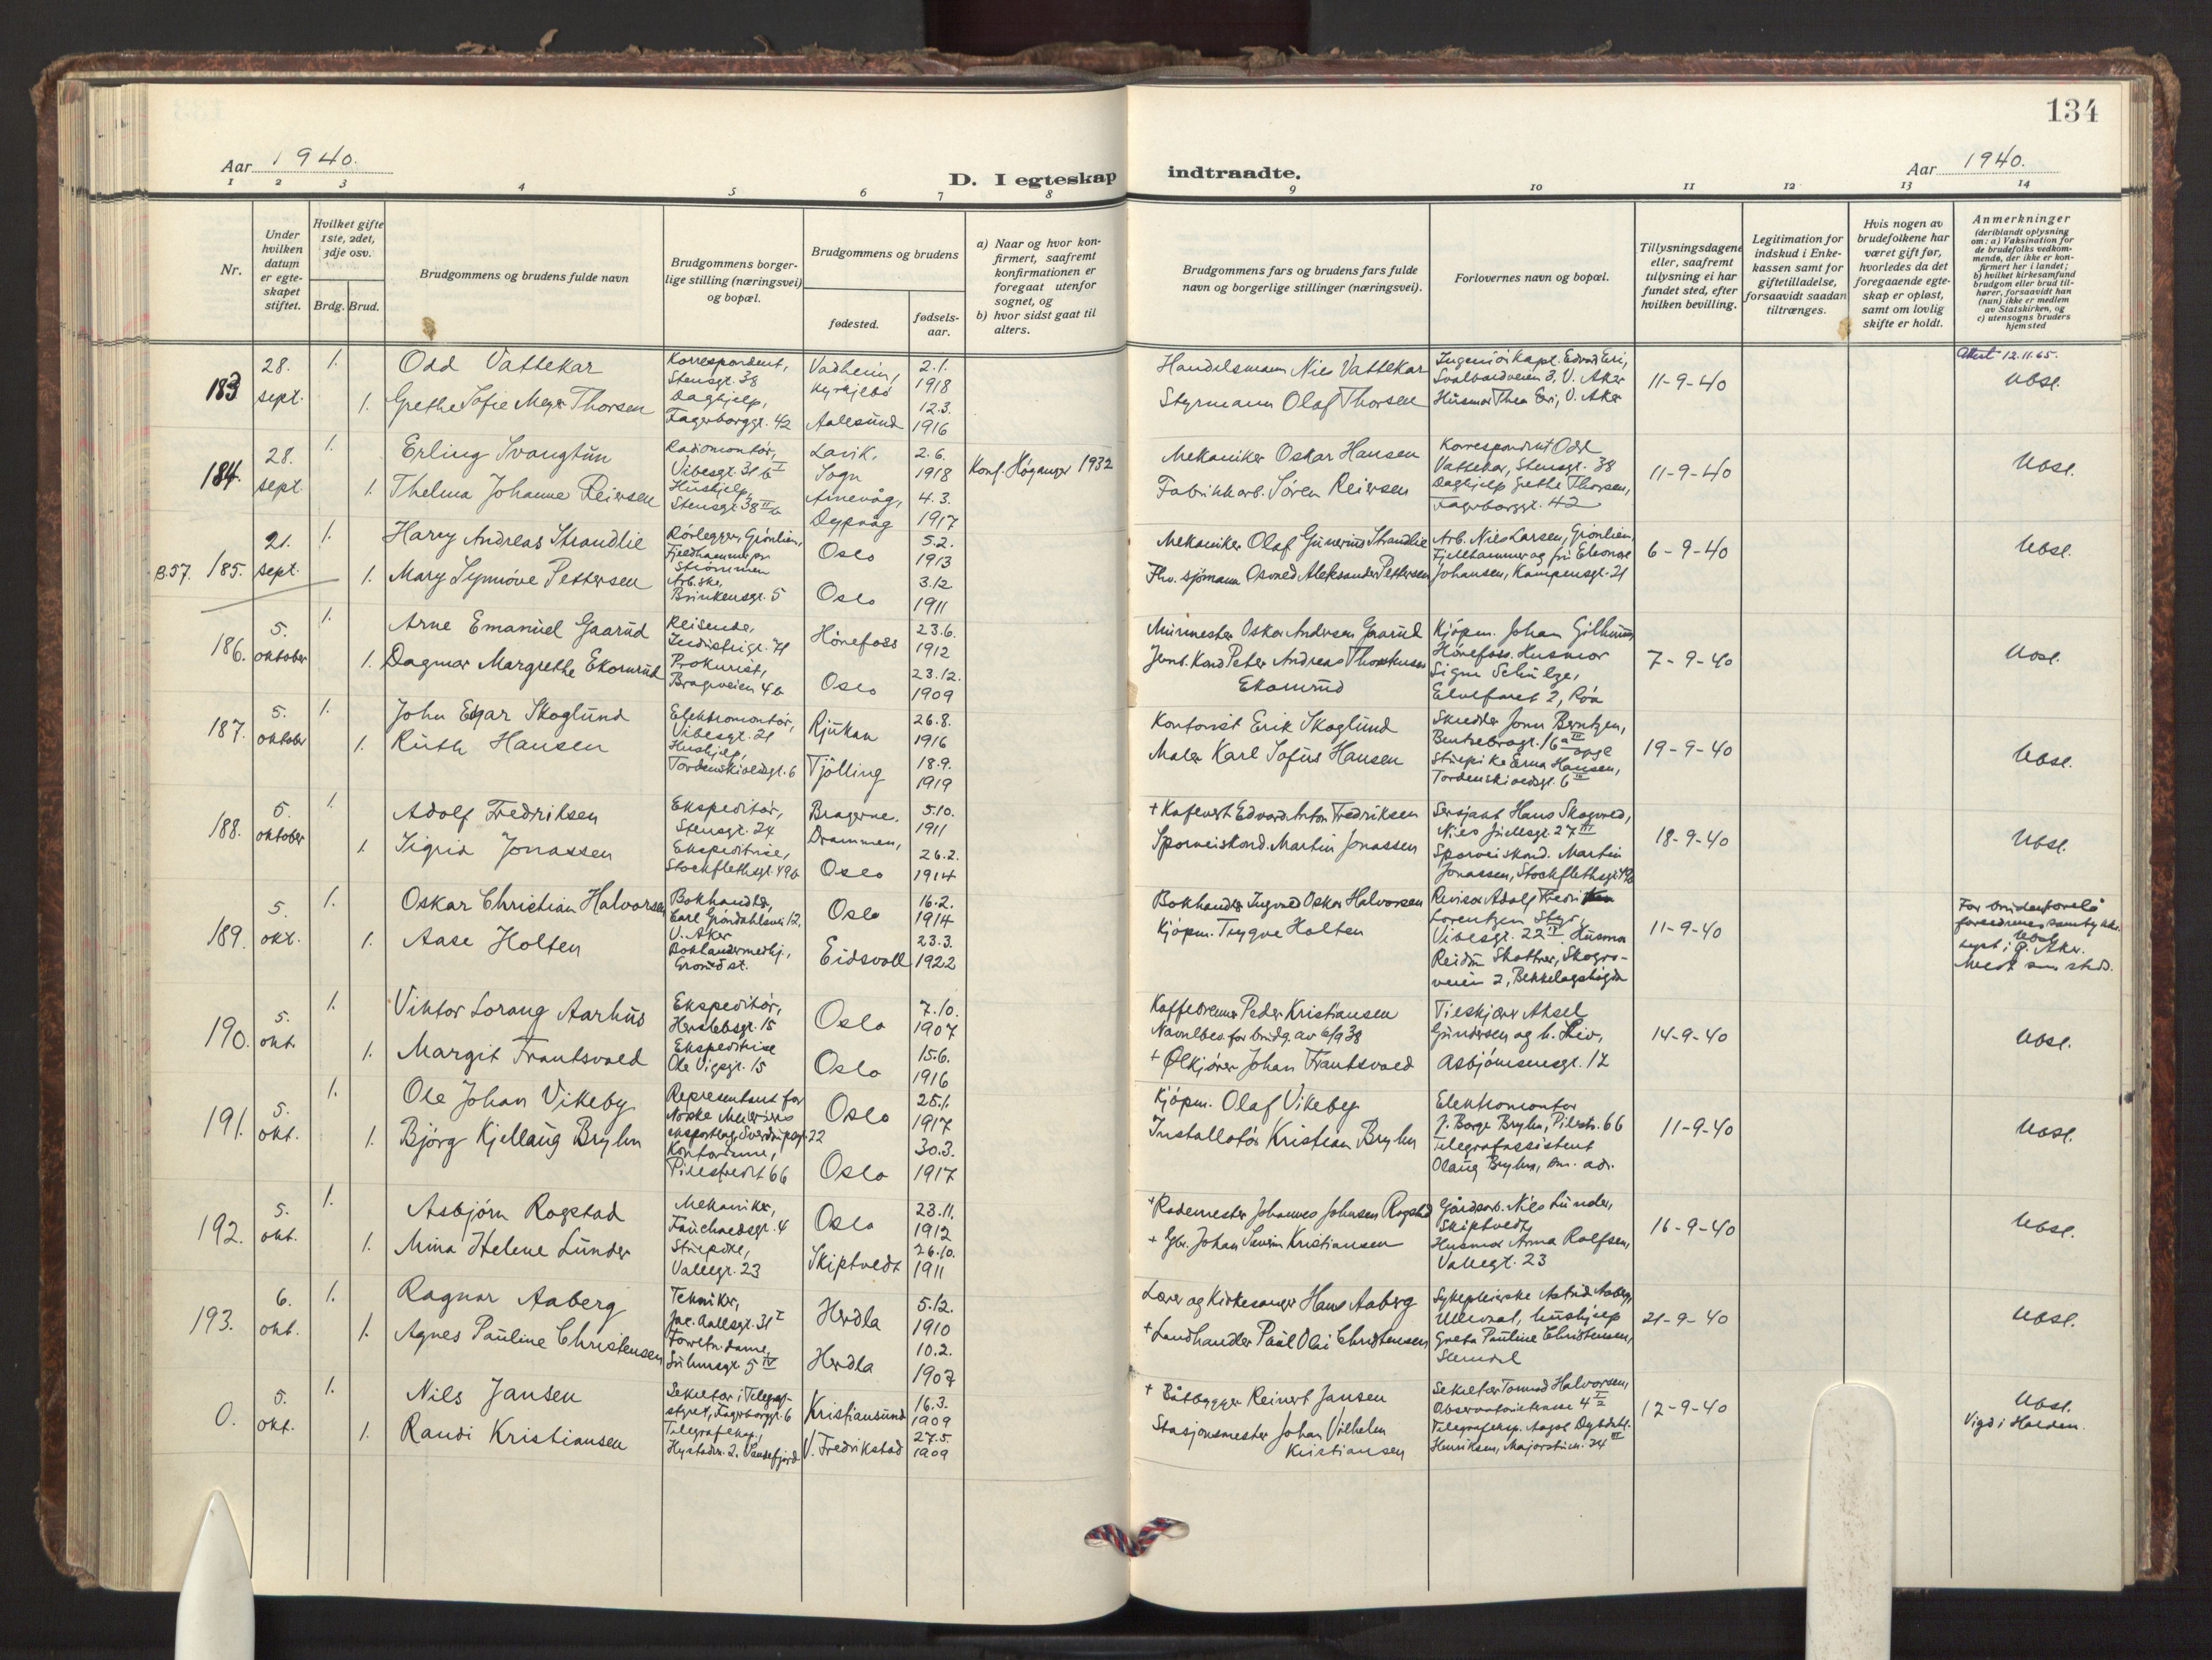 134
Aar 1940.
D. I egteskap indtraadte.
Aar 1940.
1 2 3 4 5 6 7 8 9 10 11 12 13 14
Nr.
Under hvilken datum er egte-skapet stiftet.
Hvilket gifte 1ste, 2det, 3dje osv.
Brdg. Brud.
Brudgommens og brudens fulde navn
Brudgommens borger-lige stilling (næringsvei) og bopæl.
Brudgommens og brudens
fødested.
fødsels-aar.
a) Naar og hvor kon-firmert, saafremt konfirmationen er foregaat utenfor sognet, og
b) hvor sidst gaat til alters.
Brudgommens fars og brudens fars fulde navn og borgerlige stillinger (næringsvei).
Forlovernes navn og bopæl.
Tillysningsdagene eller, saafremt tillysning ei har fundet sted, efter hvilken bevilling.
Legitimation for indskud i Enke-kassen samt for giftetilladelse, forsaavidt saadan tiltrænges.
Hvis nogen av brudefolkene har været gift før, hvorledes da det foregaaende egte-skap er opløst, samt om lovlig skifte er holdt.
Anmerkninger
(deriblandt oplysning om: a) Vaksination for de brudefolks vedkom-mende, der ikke er kon-firmert her i landet; b) hvilket kirkesamfund brudgom eller brud til-hører, forsaavidt han (hun) ikke er medlem av Statskirken, og c) utensogns bruders hjemsted
183 28. sept. 1. Odd Vattekar
Korrespondent, Stensgt. 38
Vadheim, Kyrkjebö
2.1. 1918
Handelsmann Nils Vattekar
Ingeniörkapt. Edvard Eri, Svalbardveien 3, V. Aker
11-9-40
Attest 12.11.65.
Ubsl.
1. Grethe Sofie Meyer Thorsen
Daghjelp, Fagerborggt. 42
Aalesund
12.3. 1916
Styrmann Olaf Thorsen
Husmor Thea Eri, V. Aker
184. 28. sept. 1. Erling Svangtun
Radiomontör, Vibesgt. 31 b I
Lavik, Sogn
2.6. 1918
Konf. Höyanger 1932
Mekaniker Oskar Hansen
Korrespondent Odd Vattekar, Stensgt. 38
11-9-40
Ubsl.
1. Thelma Johanne Reiersen
Hushjelp, Stensgt. 38 II b
Arnevåg, Dypvåg
4.3. 1917
Fabrikkarb. Sören Reiersen
Daghjelp Grethe Thorsen, Fagerborggt. 42
B.57. 185. 21. sept. 1. Harry Andreas Strandlie
Rörlegger, Grönlien, Fjellhammer pr Strömmen
Oslo
5.2. 1913
Mekaniker Olaf Gunerius Strandlie
Arb. Nils Larsen, Grönlien, Fjellhammer og fru Eleonore
6-9-40
Ubsl.
1. Mary Synnöve Pettersen
Arb.ske, Brinkensgt. 5
Oslo
3.12 1911
Fhv. sjömann Osvald Aleksander Pettersen
Johansen, Kampensgt. 21
186. 5. oktober 1. Arne Emanuel Gaarud
Reisende, Industrigt. 71
Hönefoss
23.6. 1912
Murmester Oskar Andersen Gaarud
Kjöpm. Johan
Hönefoss. Husmor
7-9-40
Ubsl.
1. Dagmar Margrethe Ekornrud
Prokurist, Brageveien 4 b
Oslo
23.12. 1909
Jernb. Kond Peter Andreas
Ekornrud
Signe Schulze, 2, Röa
187. 5. oktober 1. John Edgar Skoglund
Elektromontör, Vibesgt. 21
Rjukan
26.8. 1916
Kontorist Erik Skoglund
Skredder John Berntzen, Bentsebrogt. 16 a III oppg
19-9-40
Ubsl.
1. Ruth Hansen
Hushjelp, Tordenskioldsgt. 6
Tjölling
18.9. 1919
Maler Karl Sofus Hansen
Stuepike Erna Hansen, Tordenskioldsgt. 6 III
188. 5. oktober 1. Adolf Fredriksen
Ekspeditör, Stensgt. 24
Bragernes, Drammen,
5.10. 1911
+ Kafevert Edvard Anton Fredriksen
Sersjant Hans Skogvold, Nils Juelsgt. 27 III
18-9-40
Ubsl.
1. Sigrid Jonassen
Ekspeditrise, Stockflethsgt. 49 b
Oslo
26.2. 1914
Sporveiskond. Martin Jonassen
Sporveiskond. Martin Jonassen, Stockflethsgt. 49b
189. 5. okt. 1. Oskar Christian Halvorsen
Bokhandler, Carl Gröndahlsvei 12, V. Aker
Oslo
16.2. 1914
Bokhandler Ingvald Oskar Halvorsen
Revisor Adolf
Lorentzen
Vibesgt. 22 II. Husmor
11-9-40
samtykke.
Ubsl
Lyst i Ö. Aker.
1. Aase Holten
Bokhandlermedhj., Grorud st.
Eidsvoll
23.3. 1922
Kjöpm. Trygve Holten
Reidun Skattrer, Skogro-veien 2, Bekkelagshögda
190. 5. okt. 1. Viktor Lorang Aarhus
Ekspeditör, Herslebsgt. 15
Oslo
7.10. 1907
Kaffebrenner Peder Kristiansen
Navnebev. for brudg. av 6/9 38
Tilskjærer Aksel Gundersen og h. Liv,
14-9-40
Ubsl.
1. Margit Frantsvold
Ekspeditrise Ole Vigsgt. 15
Oslo
15.6. 1916
+ Ölkjörer Johan Frantsvold
Asbjörnsensgt. 12
191. 5. okt. 1. Ole Johan Vikeby
Representant for Norske Meieriers eksportlag, Sverdrupsgt. 22
Oslo
25.1. 1917
Kjöpm. Olaf Vikeby
Elektromontör J. Borge Bryhn, Pilestr. 66
11-9-40
Ubsl.
1. Björg Kjellaug Bryhn
Kontordame, Pilestredet 66
Oslo
30.3. 1917
Installatör Kristian Bryhn
Telegrafassistent Olaug Bryhn, sm. adr.
192. 5. okt. 1. Asbjörn Rogstad
Mekaniker, Fauchaldsgt. 4
Oslo
23.11. 1912
+ Rodemester Johannes Johnsen Rogstad
Gårdsarb. Nils Lunder, Skiptvedt,
16-9-40
Ubsl.
1. Mina Helene Lunder
Stuepike, Vallegt. 23
Skiptvedt
26.10. 1911
+ Gbr. Johan Severin Kristiansen
Husmor Anna Rolfsen, Vallegt. 23
193. 6. okt. 1. Ragnar Aaberg
Tekniker, Jac. Aallsgt. 31 I
Herdla
5.12. 1910
Lærer og Kirkesanger Hans Aaberg
Sykepleierske Astrid Aaberg, Ullevaal, hushjelp
21-9-40
Ubsl.
1. Agnes Pauline Christensen
Forretn.dame, Suhmsgt. 5 IV
Herdla
10.2. 1907
+ Landhandler Paul Olai Christensen
Greta Pauline Christensen,
0. 5. okt. 1. Nils Jansen
Sekretær i Telegraf-styret, Fagerborggt. 6
Kristiansund
16.3. 1909
+ Båtbygger Reinert Jansen
Sekretær Tormod Halvorsen, Observatorieterrasse 4 I
12-9-40
Ubsl.
Vigd i Halden.
1. Randi Kristiansen
Telegrafeksp., Hystadv. 2, Sandefjord
V. Fredrikstad
27.5. 1909
Stasjonsmester Johan Vilhelm Kristiansen
Telegrafeksp. Aagot Dybdahl Henriksen, Majorstuv. 24 III